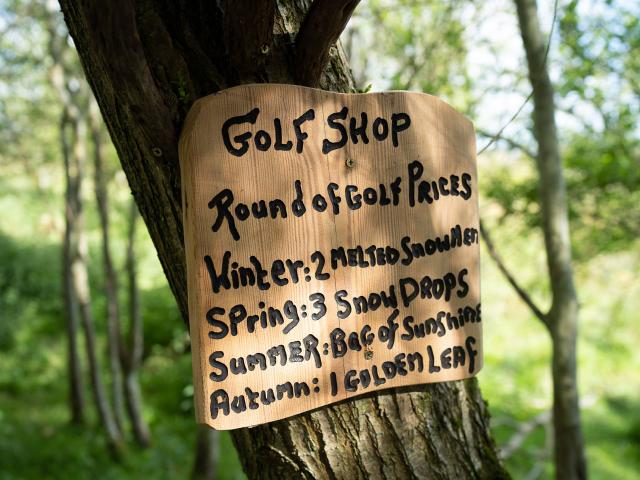 GOLF SHOP
Round of GOLF PRICES
Winter: 2 MELTED SnowMen
SPring: 3 SnowDROPS
SUMMER: Bag of Sunshine
Autumn: 1 GOLDEN LEAF